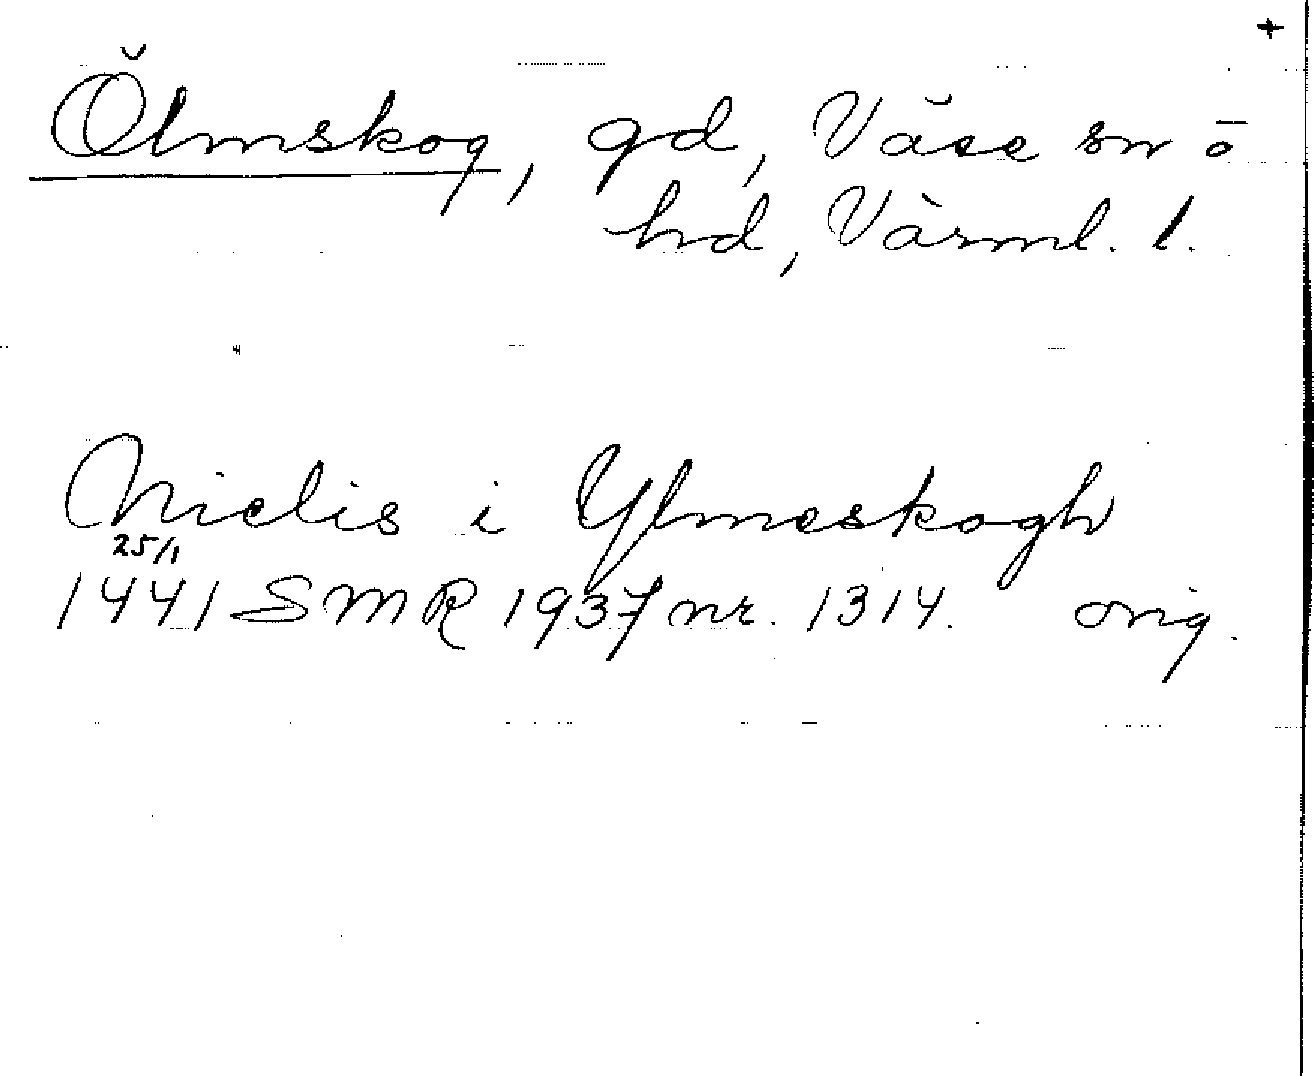 +
Ölmskog, gd, Väse sn ō
hd, Värml. l.
Nielis i Ylmeskogh
25/1
1441 SMR 1937 nr. 1314. orig.